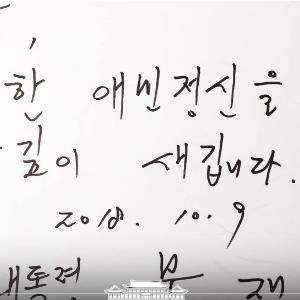 한 애민정신을
깊이 새깁니다.
2018. 10. 9
대통령 문 재